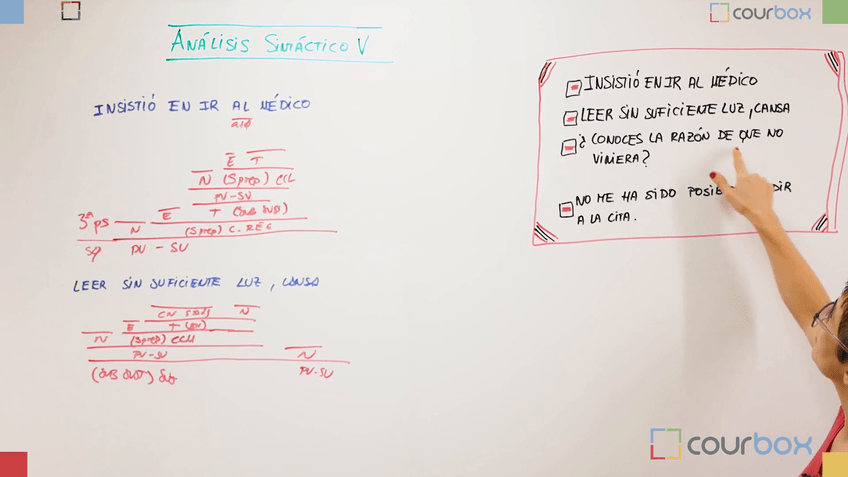 courbox
ANÁLISIS SINTÁCTICO V
INSISTIÓ EN IR AL MÉDICO
a+el
E T
N (Sprep) CCL
PV-SV
E T (SUB SUST)
3ª ps N (Sprep) C. REG
SO PV - SV
LEER SIN SUFICIENTE LUZ, CANSA
CN N
E T (SN)
N (Sprep) CCM
PV-SV N
(SUB SUST) PV-SV
INSISTIÓ EN IR AL MÉDICO
LEER SIN SUFICIENTE LUZ, CANSA
¿CONOCES LA RAZÓN DE QUE NO
VINIERA?
NO ME HA SIDO
A LA CITA.
courbox